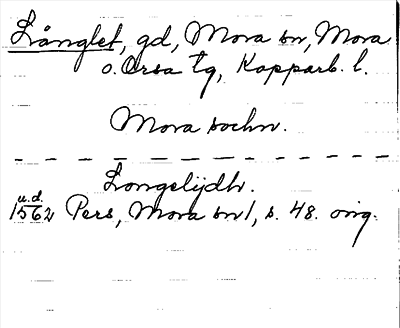 Långlet, gd, Mora sn, Mora
o. Orsa tg, Kopparb. l.
Mora sochn.
Longelijdh.
u.d.
1562 Pers, Mora sn 1, s. 48. orig.